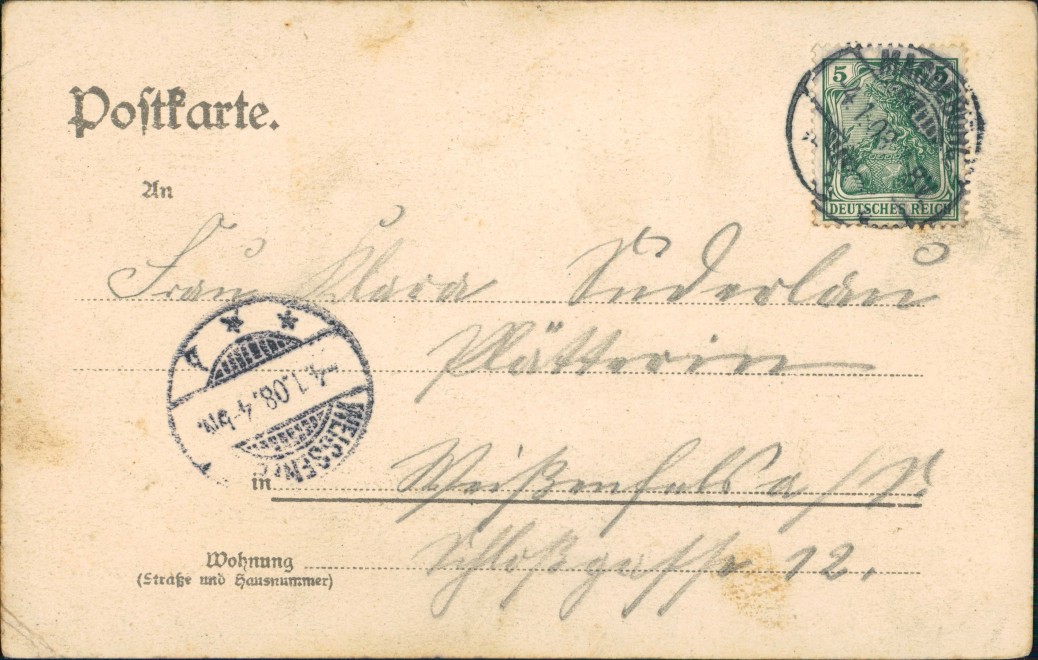 Postkarte.
5
MAGDEBURG
4.1.08
DEUTSCHES REICH
An
Frau Klara Süderlau
Plätterin
4.1.08. 4-5N.
WEISSENF
in Weißenfels a/S.
Schloßgasse 12.
Wohnung
(Straße und Hausnummer)